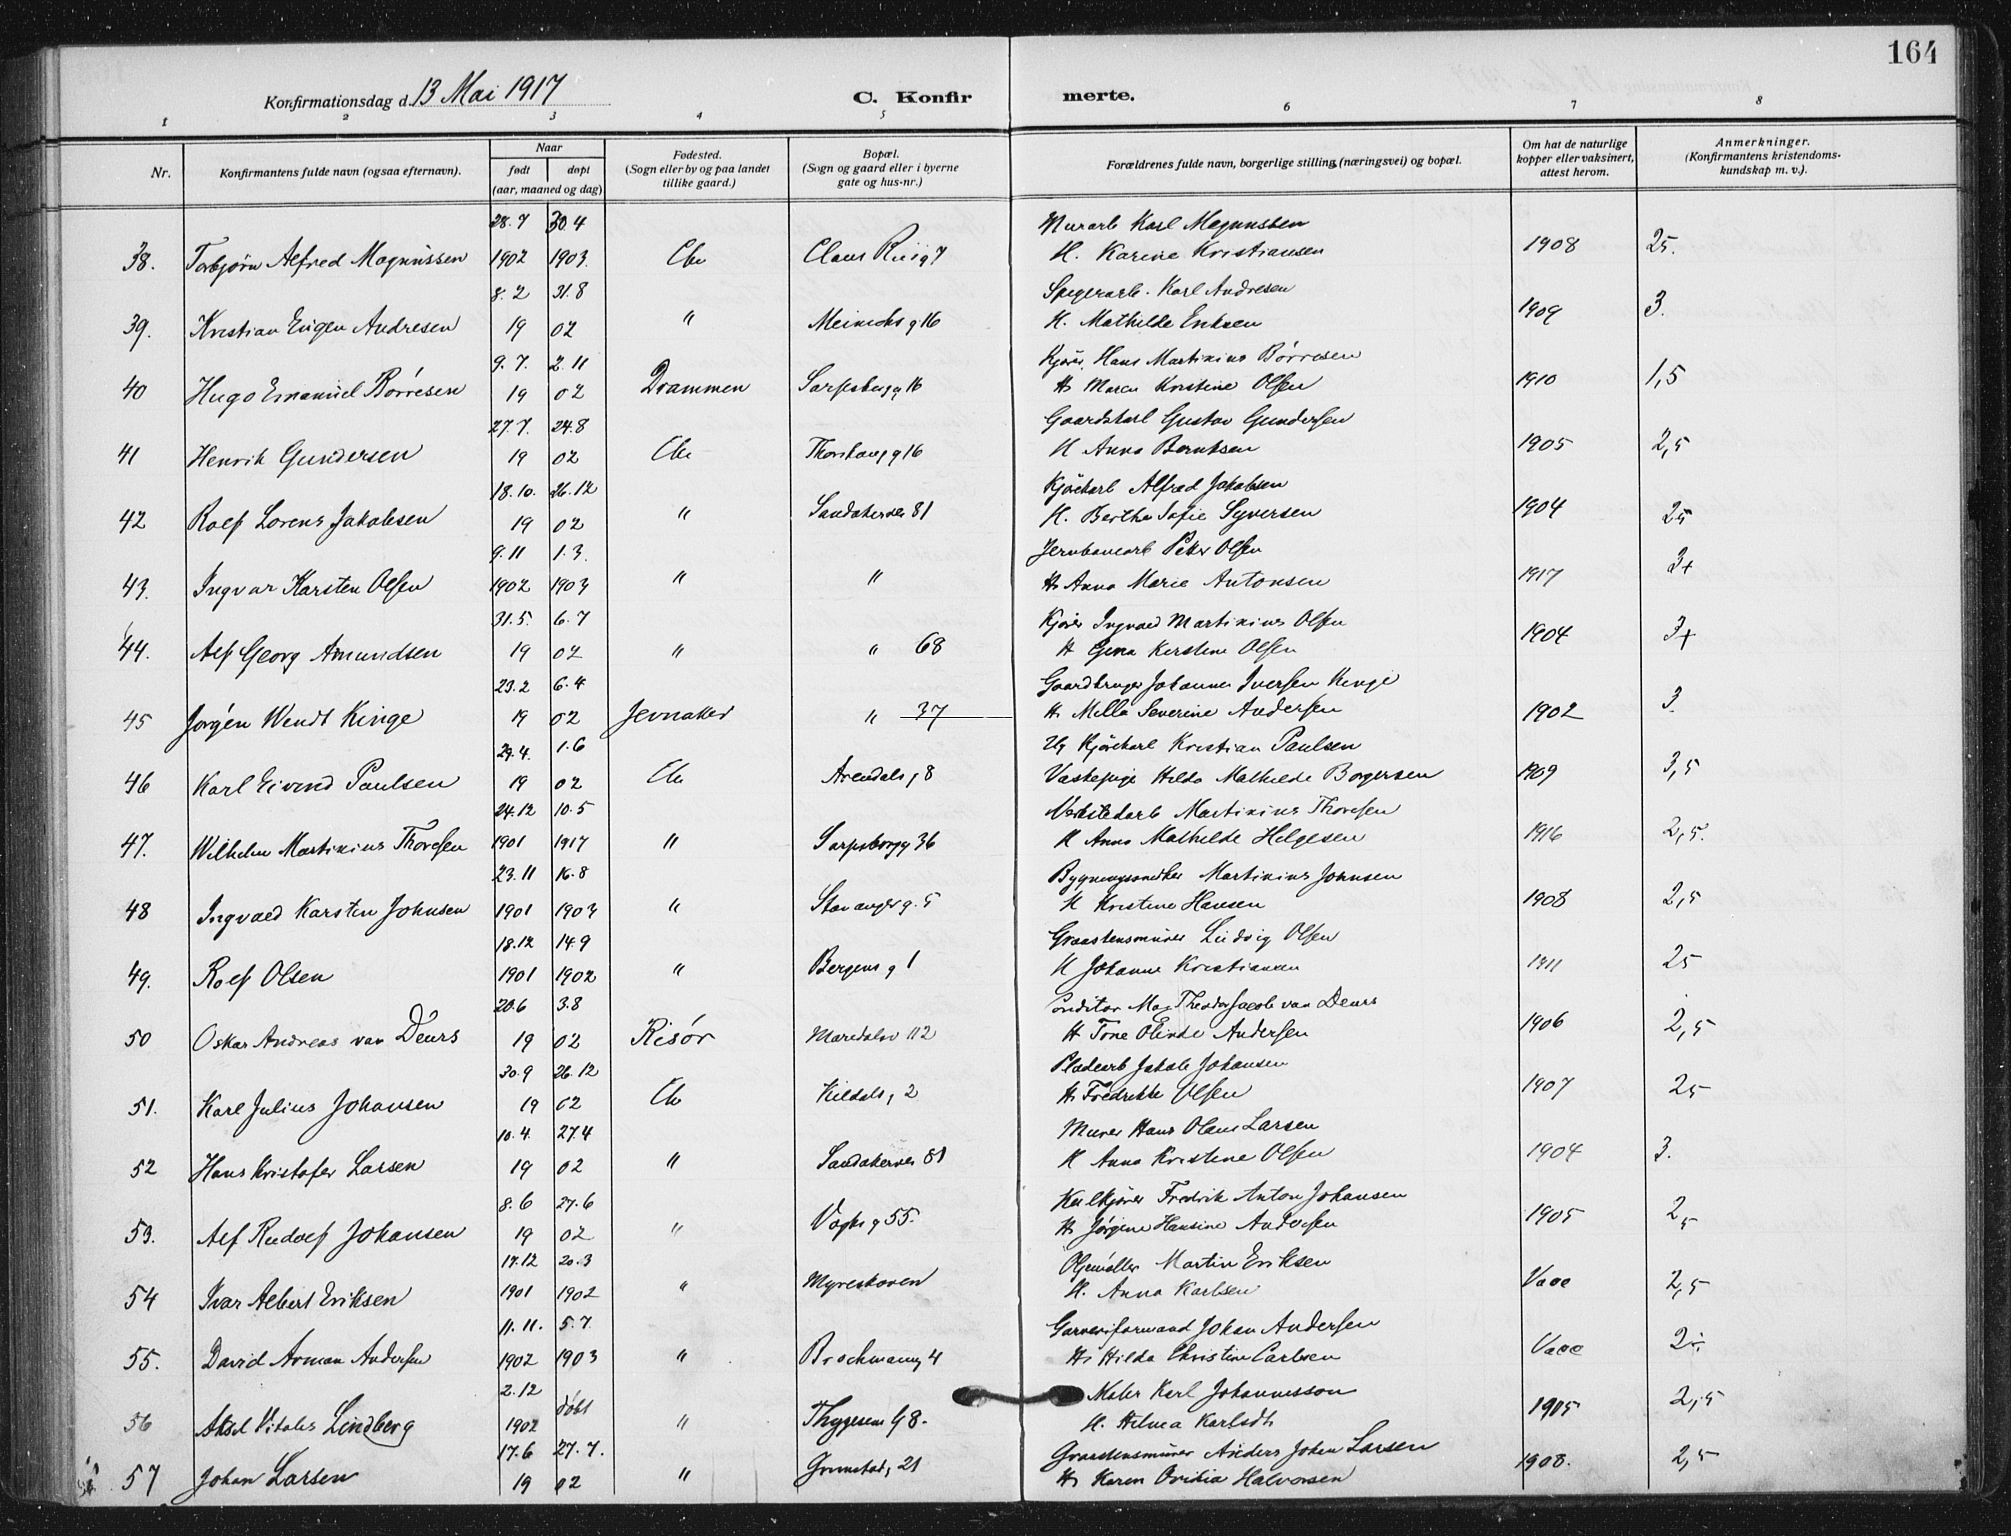 164
Konfirmationsdag d. 13 Mai 1917
C. Konfir merte.
1 2 3 4 5 6 7 8
Nr.
Konfirmantens fulde navn (ogsaa efternavn).
Naar
født døpt
(aar, maaned og dag)
Fødested.
(Sogn eller by og paa landet
tillike gaard.)
Bopæl.
(Sogn og gaard eller i byerne
gate og hus-nr.)
Forældrenes fulde navn, borgerlige stilling, (næringsvei) og bopæl.
Om hat de naturlige
kopper eller vaksinert,
attest herom.
Anmerkninger.
(Konfirmantens kristendoms-
kundskap m. v.).
28.7 30.4 Murarb Karl Magnussen
38. Torbjørn Alfred Magnussen 1902 1903 Chr Claus Riisg 7 H. Karine Kristiansen 1908 25.
8.2 31.8 Karl Andresen
39. Kristian Eugen Andresen 19 02 " 16 H. Mathilde Eriksen 1909 3.
9.7. 2.11 Kjører Hans Martinius Børresen
40 Hugo Emanuel Børresen 19 02 Drammen Sarpsborgg 16 H Kristine Olsen 1910 1,5
27.7. 24.8 Gaardskarl Gustav Gundersen
41 Henrik Gundersen 19 02 Chr 16 H Anna Berntsen 1905 2,5
18.10. 26.12 Kjørekarl Alfred Jakobsen
42 Rolf Lorens Jakobsen 19 02 " Sandakerver 81 H. Berthe Sofie Syversen 1904 25
9.11 1.3. Jernbanearb Peter Olsen
43. Ingvar Karsten Olsen 1902 1903 " " H Anna Marie Antonsen 1917 3+
31.5. 6.7 Kjører Ingvald Martinius Olsen
44. Alf Georg Amundsen 19 02 " " 68 H Gina Kirstine Olsen 1904 3+
23.2 6.4 Gaardbruger Johannes Iversen Kinge
45 Jørgen Wendt Kinge 19 02 Jevnaker " 37 H Milla Severine Andersen 1902 3.
29.4. 1.6 Ug Kjørekarl Kristian Paulsen
46 Karl Eivind Paulsen 19 02 Chr Arendalsg 8 Vaskepige Hilda Mathilde Borgersen 1909 3,5
24.12 10.5 Verkstedarb Martinius Thoresen
47. Wilhelm Martinius Thoresen 1901 1917 " Sarpsborgg 36 H Anna Mathilde Helgesen 1916 2,5.
23.11 16.8 Bygningssnedker Martinius Johnsen
48 Ingvald Karsten Johnsen 1901 1903 " Stavangerg. 5 H Kristine Hansen 1908 2,5
18.12 14.9 Graastensmurer Ludvig Olsen
49. Rolf Olsen 1901 1902 " Bergensg 1 H Johanne Kristiansen 1911 25
20.6 3.8 Conditor Max Theodor Jacob van Deurs
50 Oskar Andreas van Deurs 19 02 Risør Maridalsv 112 H Tone Olinde Andersen 1906 2,5
30.9 26.12 Pladearb Jakob Johansen
51. Karl Julius Johansen 19 02 Chr 2 H Fredrikke Olsen 1907 25
10.4. 27.4 Murer Hans Olaus Larsen
52 Hans Kristofer Larsen 19 02 " Sandakerver 81 H Anna Kristine Olsen 1904 3.
8.6 27.6 Kulkjører Fredrik Anton Johansen
53. Alf Rudolf Johansen 19 02 " Vogtsg 55. H Jørgine Hansine Andersen 1905 2,5
17.12 20.3 Oljemøller Martin Eriksen
54 Ivar Albert Eriksen 1901 1902 " Myreskoven H. Anna Karlsen Vacc 2,5
11.11. 5.7. Garveriformand Johan Andersen
55. David Arman Andersen 1902 1903 " Brochmansg 4 H Hilda Christine Carlsen Vacc 2
2.12 døbt Maler Karl Johannesson
56 Aksel Vitalis Lindberg 1902 " Thygesens G 8. H. Hilma Karlsdt 1905 2,5
17.6 27.7. Graastensmurer Anders Johan Larsen
57 Johan Larsen 19 02 " Grimstadg 21 H Karen Ovidia Halvorsen 1908. 2,5